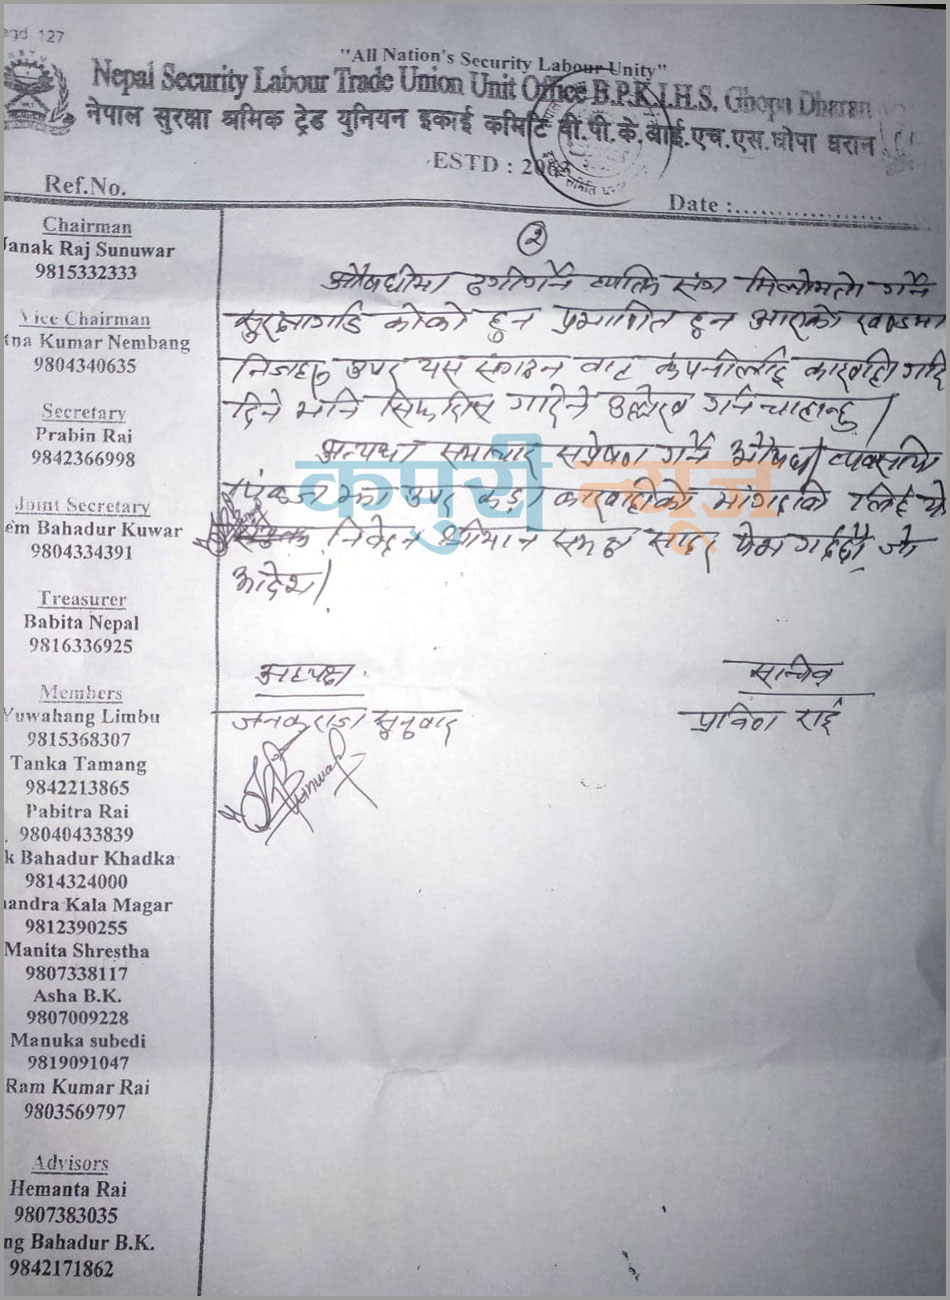 egd 127
"All Nation's Security Labour Unity"
Nepal Security Labour Trade Union Unit Office B.P.K.I.H.S. Ghopa Dharan
नेपाल सुरक्षा श्रमिक ट्रेड युनियन इकाई कमिटि बी.पी.के.आई.एच.एस.घोपा धरान
ESTD : 2063
Ref.No.
Date :..................
Chairman
Janak Raj Sunuwar
9815332333
Vice Chairman
tna Kumar Nembang
9804340635
Secretary
Prabin Rai
9842366998
Joint Secretary
em Bahadur Kuwar
9804334391
Treasurer
Babita Nepal
9816336925
Members
Yuwahang Limbu
9815368307
Tanka Tamang
9842213865
Pabitra Rai
98040433839
k Bahadur Khadka
9814324000
andra Kala Magar
9812390255
Manita Shrestha
9807338117
Asha B.K.
9807009228
Manuka subedi
9819091047
Ram Kumar Rai
9803569797
Advisors
Hemanta Rai
9807383035
ng Bahadur B.K.
9842171862
२
औषधीमा ठगीगर्ने व्यक्ति संग मिलोमतो गर्ने
सुरक्षागार्ड कोको हुन प्रमाणित हुन आएको खण्डमा
निजहरु उपर यस संगठन बाट कंपनीलाई कारवाही गरि
दिने भनि सिफारिस गरिने उल्लेख गर्न चाहान्छु।
अन्यथा समाचार सप्रेषण गर्ने औषधी व्यवसायि
पंकज झा उपर कडा कारवाहीको मांग लिई यो
निवेदन श्रीमान समक्ष सादर पेश गर्दछौ जो
आदेश।
अध्यक्ष
जनकराज सुनुवार
सचिव
प्रविण राई
कपुरी न्यूज